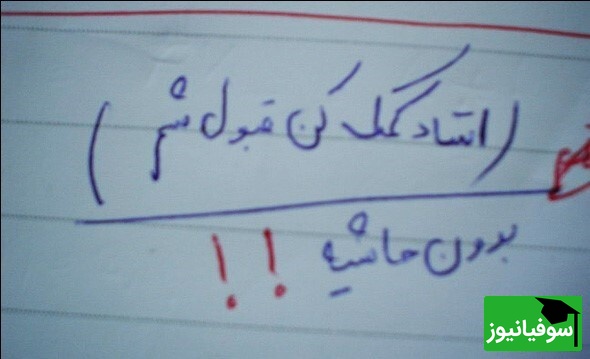 (استاد کمک کن قبول شم)
بدون حاشیه !!
سوفیانیوز